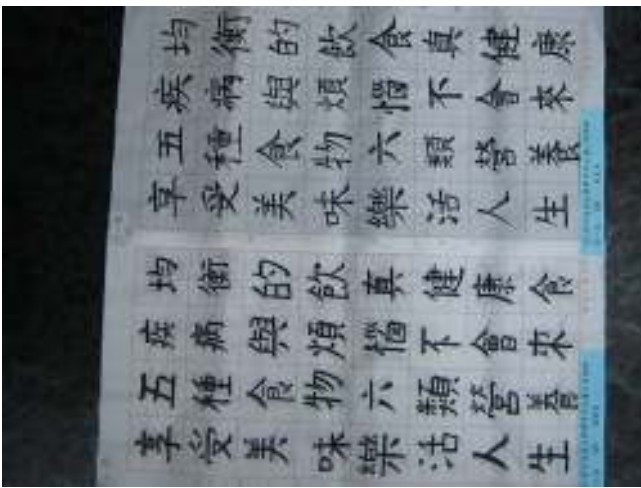 均衡的飲食真健康
疾病與煩惱不會來
五種食物六類營養
享受美味樂活人生
均衡的飲真健康食
疾病與煩惱不會來
五種食物六類營養
享受美味樂活人生